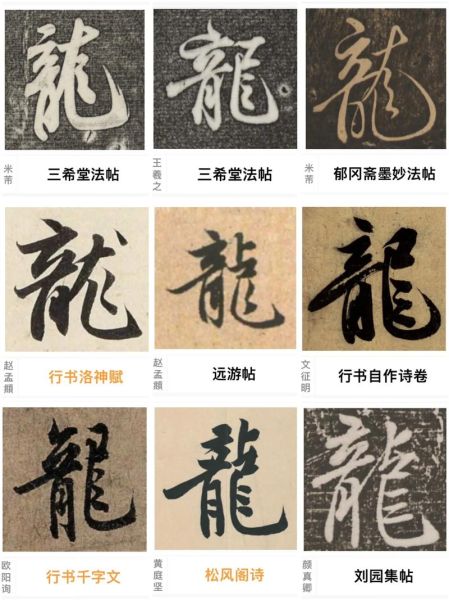 龍
龍
龍
米芾
三希堂法帖
王羲之
三希堂法帖
米芾
郁冈斋墨妙法帖
龍
龍
龍
赵孟頫
行书洛神赋
赵孟頫
远游帖
文征明
行书自作诗卷
龍
龍
龍
欧阳询
行书千字文
黄庭坚
松风阁诗
颜真卿
刘园集帖